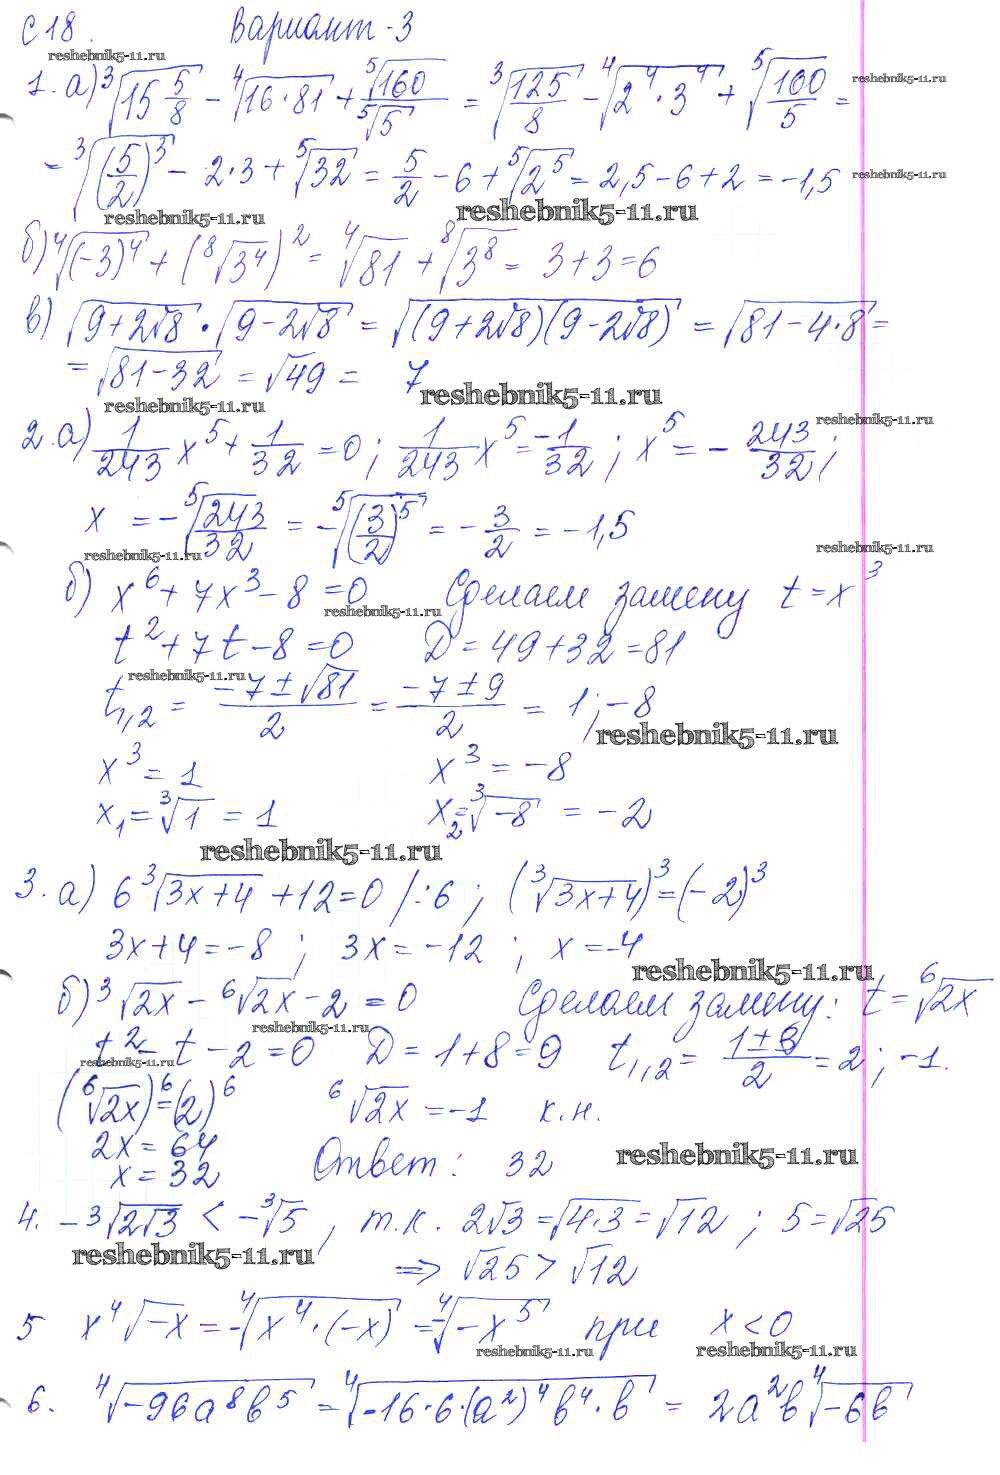 С 18. Вариант-3
reshebnik5-11.ru
1. а) ³√(15 5/8) − ⁴√(16·81) + ⁵√160/⁵√5 = ³√(125/8) − ⁴√(2⁴·3⁴) + ⁵√(160/5) =
reshebnik5-11.ru
= ³√((5/2)³) − 2·3 + ⁵√32 = 5/2 − 6 + ⁵√(2⁵) = 2,5 − 6 + 2 = −1,5
reshebnik5-11.ru
reshebnik5-11.ru reshebnik5-11.ru
б) ⁴√((−3)⁴) + (⁸√(3⁴))² = ⁴√81 + ⁸√(3⁸) = 3+3=6
в) √(9+2√8) · √(9−2√8) = √((9+2√8)(9−2√8)) = √(81−4·8) =
= √(81−32) = √49 = 7
reshebnik5-11.ru reshebnik5-11.ru
reshebnik5-11.ru
2. а) 1/243 x⁵ + 1/32 = 0; 1/243 x⁵ = −1/32; x⁵ = − 243/32;
x = −⁵√(243/32) = −⁵√((3/2)⁵) = −3/2 = −1,5
reshebnik5-11.ru reshebnik5-11.ru
б) x⁶ + 7x³ − 8 = 0 Сделаем замену t = x³
reshebnik5-11.ru
t² + 7t − 8 = 0 D = 49+32=81
reshebnik5-11.ru
t₁,₂ = (−7±√81)/2 = (−7±9)/2 = 1; −8
reshebnik5-11.ru
x³ = 1 x³ = −8
x₁ = ³√1 = 1 x₂ = ³√−8 = −2
reshebnik5-11.ru
3. а) 6 ³√(3x+4) + 12 = 0 /:6 ; (³√(3x+4))³ = (−2)³
3x+4 = −8 ; 3x = −12 ; x = −4
reshebnik5-11.ru
б) ³√(2x) − ⁶√(2x) − 2 = 0 Сделаем замену: t = ⁶√(2x)
reshebnik5-11.ru
t² − t − 2 = 0 D = 1+8=9 t₁,₂ = (1±3)/2 = 2; −1.
reshebnik5-11.ru
(⁶√(2x))⁶ = (2)⁶ ⁶√(2x) = −1 к.н.
2x = 64
x = 32 Ответ: 32
reshebnik5-11.ru
4. −³√(2√3) < −³√5, т.к. 2√3 = √(4·3) = √12 ; 5 = √25
reshebnik5-11.ru
=> √25 > √12
5 x ⁴√−x = −⁴√(x⁴·(−x)) = −⁴√(−x⁵) при x < 0
reshebnik5-11.ru reshebnik5-11.ru
6. ⁴√(−96a⁸b⁵) = ⁴√(−16·6·(a²)⁴b⁴·b) = 2a²b ⁴√(−6b)